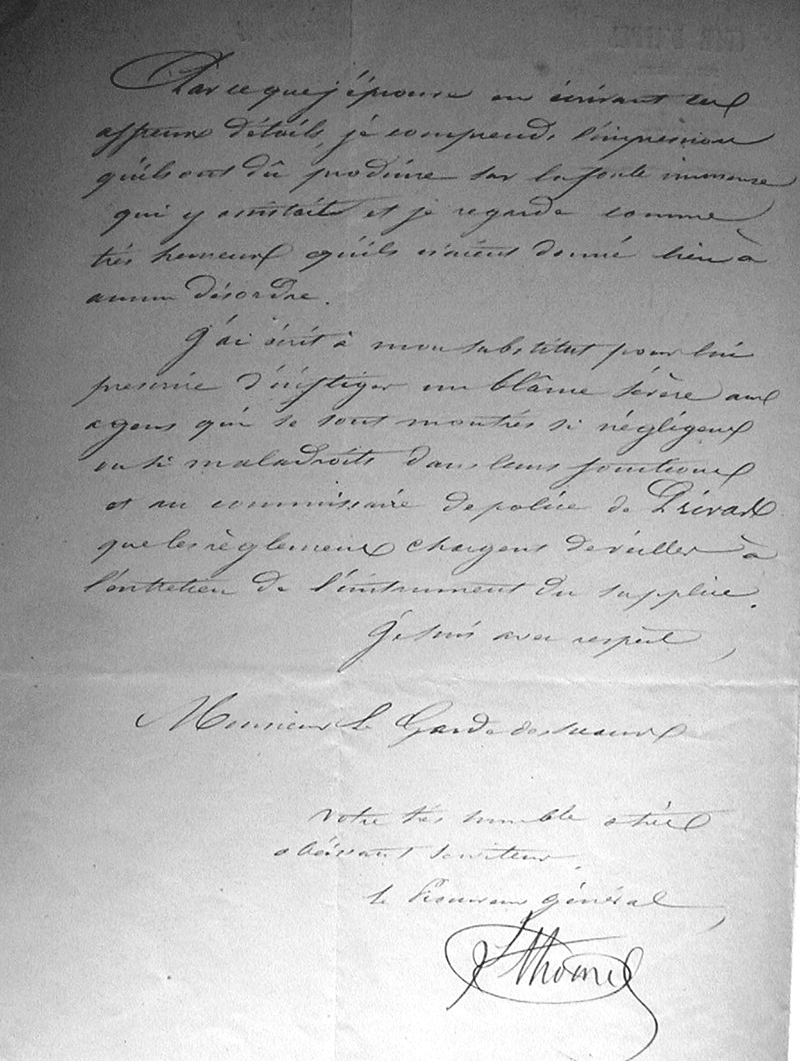 Par ce que j'éprouve en écrivant ces
affreux détails, je comprends l'impression
qu'ils ont dû produire sur la foule immense
qui y assistait et je regarde comme
très heureux qu'ils n'aient donné lieu à
aucun désordre.
J'ai écrit à mon substitut pour lui
prescrire d'infliger un blâme sévère aux
agens qui se sont montrés si négligens
ou si maladroits dans leurs fonctions
et au commissaire de police de Privas
que les règlemens chargent de veiller à
l'entretien de l'instrument du supplice.
Je suis avec respect,
Monsieur Le Garde des sceaux
votre très humble et très
obéissant serviteur,
le Procureur général,